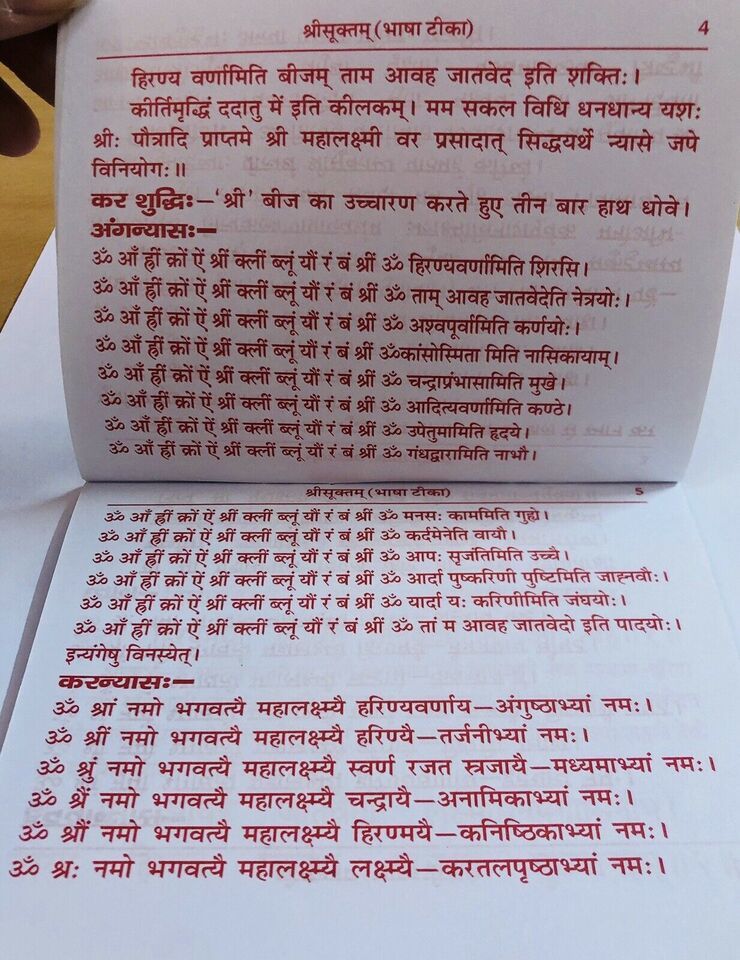 श्रीसूक्तम् (भाषा टीका) 4
हिरण्य वर्णामिति बीजम् ताम आवह जातवेद इति शक्तिः।
कीर्तिमृद्धिं ददातु में इति कीलकम्। मम सकल विधि धनधान्य यशः
श्रीः पौत्रादि प्राप्तमे श्री महालक्ष्मी वर प्रसादात् सिद्धयर्थे न्यासे जपे
विनियोगः॥
कर शुद्धिः—‘श्री’ बीज का उच्चारण करते हुए तीन बार हाथ धोवे।
अंगन्यासः—
ॐ आँ ह्रीं क्रों ऐं श्रीं क्लीं ब्लूं यौं रं बं श्रीं ॐ हिरण्यवर्णामिति शिरसि।
ॐ आँ ह्रीं क्रों ऐं श्रीं क्लीं ब्लूं यौं रं बं श्रीं ॐ ताम् आवह जातवेदेति नेत्रयोः।
ॐ आँ ह्रीं क्रों ऐं श्रीं क्लीं ब्लूं यौं रं बं श्रीं ॐ अश्वपूर्वामिति कर्णयोः।
ॐ आँ ह्रीं क्रों ऐं श्रीं क्लीं ब्लूं यौं रं बं श्रीं ॐकांसोस्मिता मिति नासिकायाम्।
ॐ आँ ह्रीं क्रों ऐं श्रीं क्लीं ब्लूं यौं रं बं श्रीं ॐ चन्द्राप्रंभासामिति मुखे।
ॐ आँ ह्रीं क्रों ऐं श्रीं क्लीं ब्लूं यौं रं बं श्रीं ॐ आदित्यवर्णामिति कण्ठे।
ॐ आँ ह्रीं क्रों ऐं श्रीं क्लीं ब्लूं यौं रं बं श्रीं ॐ उपेतुमामिति हृदये।
ॐ आँ ह्रीं क्रों ऐं श्रीं क्लीं ब्लूं यौं रं बं श्रीं ॐ गंधद्वारामिति नाभौ।
श्रीसूक्तम् (भाषा टीका) 5
ॐ आँ ह्रीं क्रों ऐं श्रीं क्लीं ब्लूं यौं रं बं श्रीं ॐ मनसः काममिति गुह्ये।
ॐ आँ ह्रीं क्रों ऐं श्रीं क्लीं ब्लूं यौं रं बं श्रीं ॐ कर्दमेनेति वायौ।
ॐ आँ ह्रीं क्रों ऐं श्रीं क्लीं ब्लूं यौं रं बं श्रीं ॐ आपः सृजंतिमिति उच्चै।
ॐ आँ ह्रीं क्रों ऐं श्रीं क्लीं ब्लूं यौं रं बं श्रीं ॐ आर्दा पुष्करिणी पुष्टिमिति जाह्नवौः।
ॐ आँ ह्रीं क्रों ऐं श्रीं क्लीं ब्लूं यौं रं बं श्रीं ॐ यार्दा यः करिणीमिति जंघयोः।
ॐ आँ ह्रीं क्रों ऐं श्रीं क्लीं ब्लूं यौं रं बं श्रीं ॐ तां म आवह जातवेदो इति पादयोः।
इन्यंगेषु विनस्येत्।
करन्यासः—
ॐ श्रां नमो भगवत्यै महालक्ष्म्यै हरिण्यवर्णाय—अंगुष्ठाभ्यां नमः।
ॐ श्रीं नमो भगवत्यै महालक्ष्म्यै हरिण्यै—तर्जनीभ्यां नमः।
ॐ श्रुं नमो भगवत्यै महालक्ष्म्यै स्वर्ण रजत स्त्रजायै—मध्यमाभ्यां नमः।
ॐ श्रैं नमो भगवत्यै महालक्ष्म्यै चन्द्रायै—अनामिकाभ्यां नमः।
ॐ श्रौं नमो भगवत्यै महालक्ष्म्यै हिरण्मयै—कनिष्ठिकाभ्यां नमः।
ॐ श्रः नमो भगवत्यै महालक्ष्म्यै लक्ष्म्यै—करतलपृष्ठाभ्यां नमः।